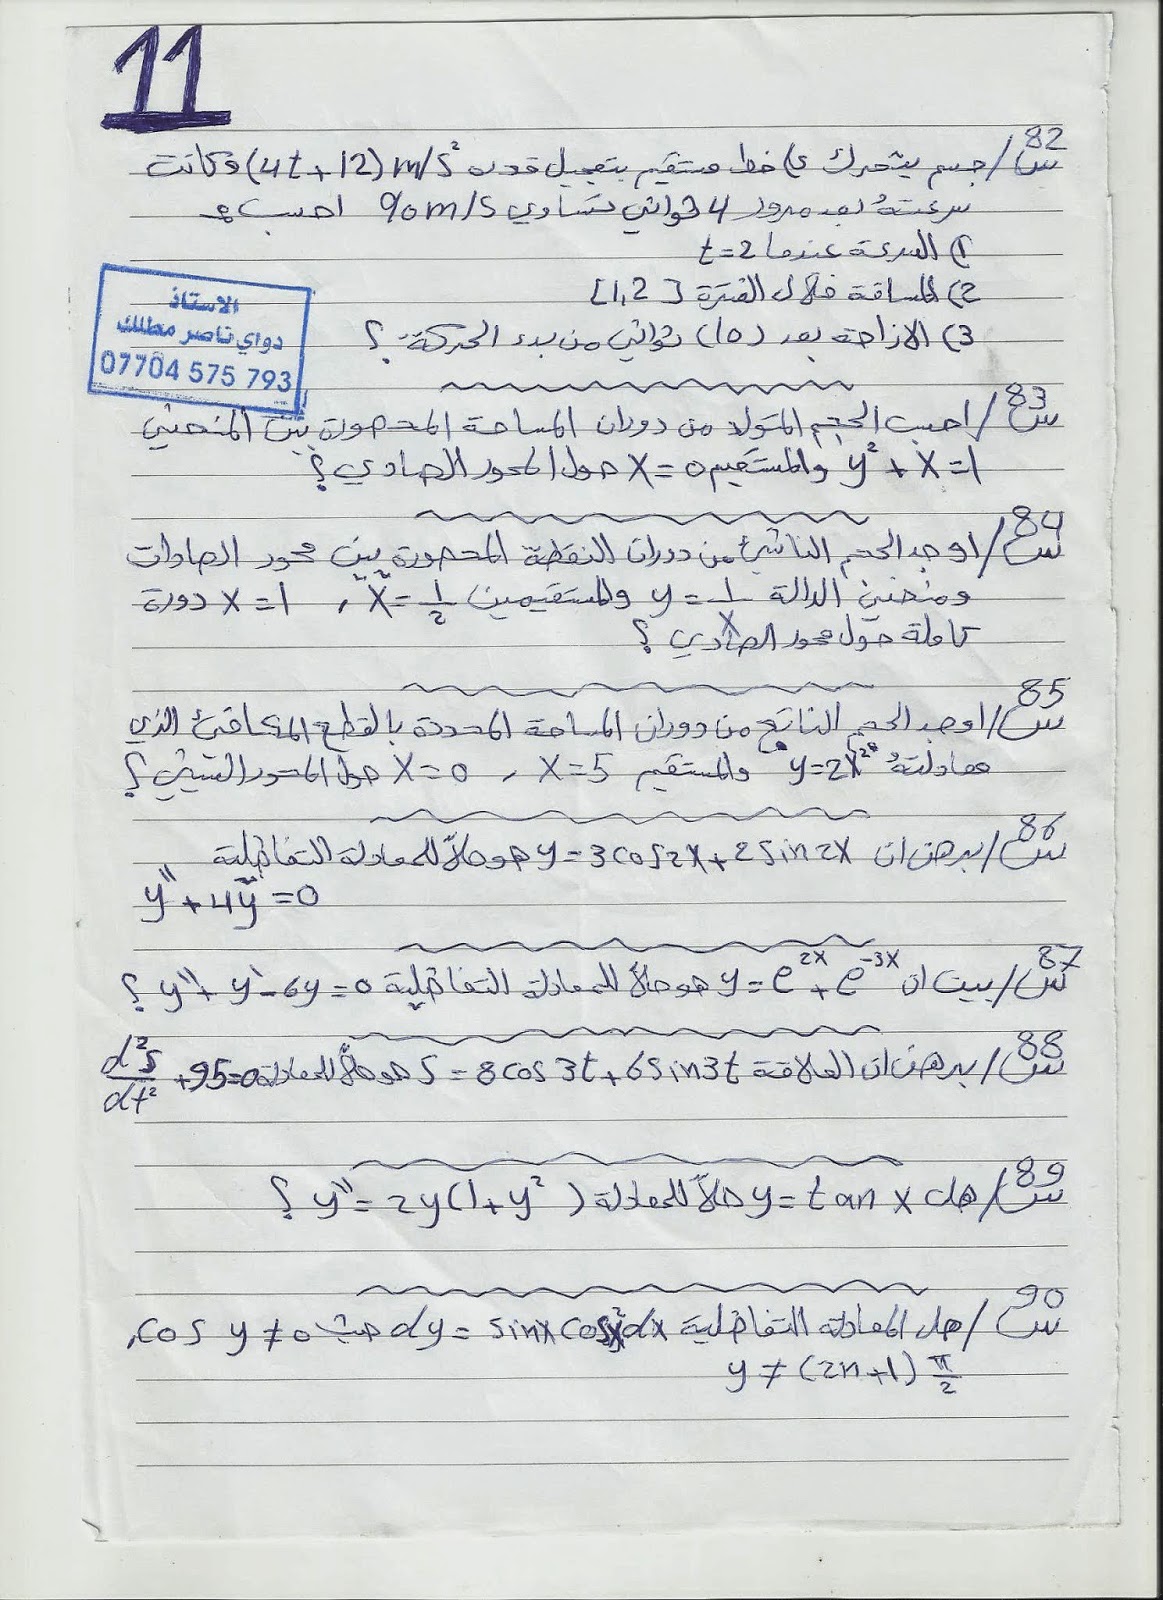 11
س82/ جسم يتحرك على خط مستقيم بتعجيل قدره (4t+12) m/s² وكانت
سرعته بعد مرور 4 ثواني تساوي 90 m/s احسب
1) السرعة عندما t=2
2) المسافة خلال الفترة [1,2]
3) الازاحة بعد (10) ثواني من بدء الحركة؟
الاستاذ
دواي ناصر مطلك
07704 575 793
س83/ احسب الحجم المتولد من دوران المساحة المحصورة بين المنحني
y²+x=1 والمستقيم x=0 حول المحور الصادي؟
س84/ اوجد الحجم الناشئ من دوران النقطة المحصورة بين محور الصادات
ومنحني الدالة y=1/x والمستقيمين x=1/2 , x=1 دورة
كاملة حول محور الصادي؟
س85/ اوجد الحجم الناتج من دوران المساحة المحددة بالقطع المكافئ الذي
معادلته y=2x² والمستقيم x=5 , x=0 حول المحور السيني؟
س86/ برهن ان y=3cos2x+2sin2x هو حلاً للمعادلة التفاضلية
y''+4y=0
س87/ بين ان y=e^2x+e^-3x هو حلاً للمعادلة التفاضلية y''+y'-6y=0 ؟
س88/ برهن ان العلاقة s=8cos3t+6sin3t هو حلاً للمعادلة d²s/dt²+9s=0
س89/ هل y=tan x حلاً للمعادلة y''=2y(1+y²) ؟
س90/ حل المعادلة التفاضلية dy=sinx cos²x dx حيث cos y≠0,
y≠(2n+1)π/2